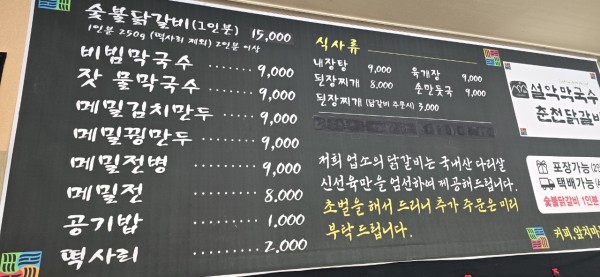 숯불닭갈비(1인분) 15,000
1인분 250g (떡사리 제외) 2인분 이상
비빔막국수 ········ 9,000
잣 물막국수 ········ 9,000
메밀김치만두 ········ 9,000
메밀꿩만두 ········ 9,000
메밀전병 ········ 9,000
메밀전 ········ 8.000
공기밥 ········ 1.000
떡사리 ········ 2.000
식사류
내장탕 9,000 육개장 9,000
된장찌개 8,000 손만둣국 9,000
된장찌개 (닭갈비 주문시) 3,000
저희 업소의 닭갈비는 국내산 다리살
신선육만을 엄선하여 제공해드립니다.
초벌을 해서 드리니 추가 주문은 미리
부탁드립니다.
설악막국수
춘천닭갈비
포장가능(2인
택배가능(4
숯불닭갈비 1인분
커피, 앞치마는